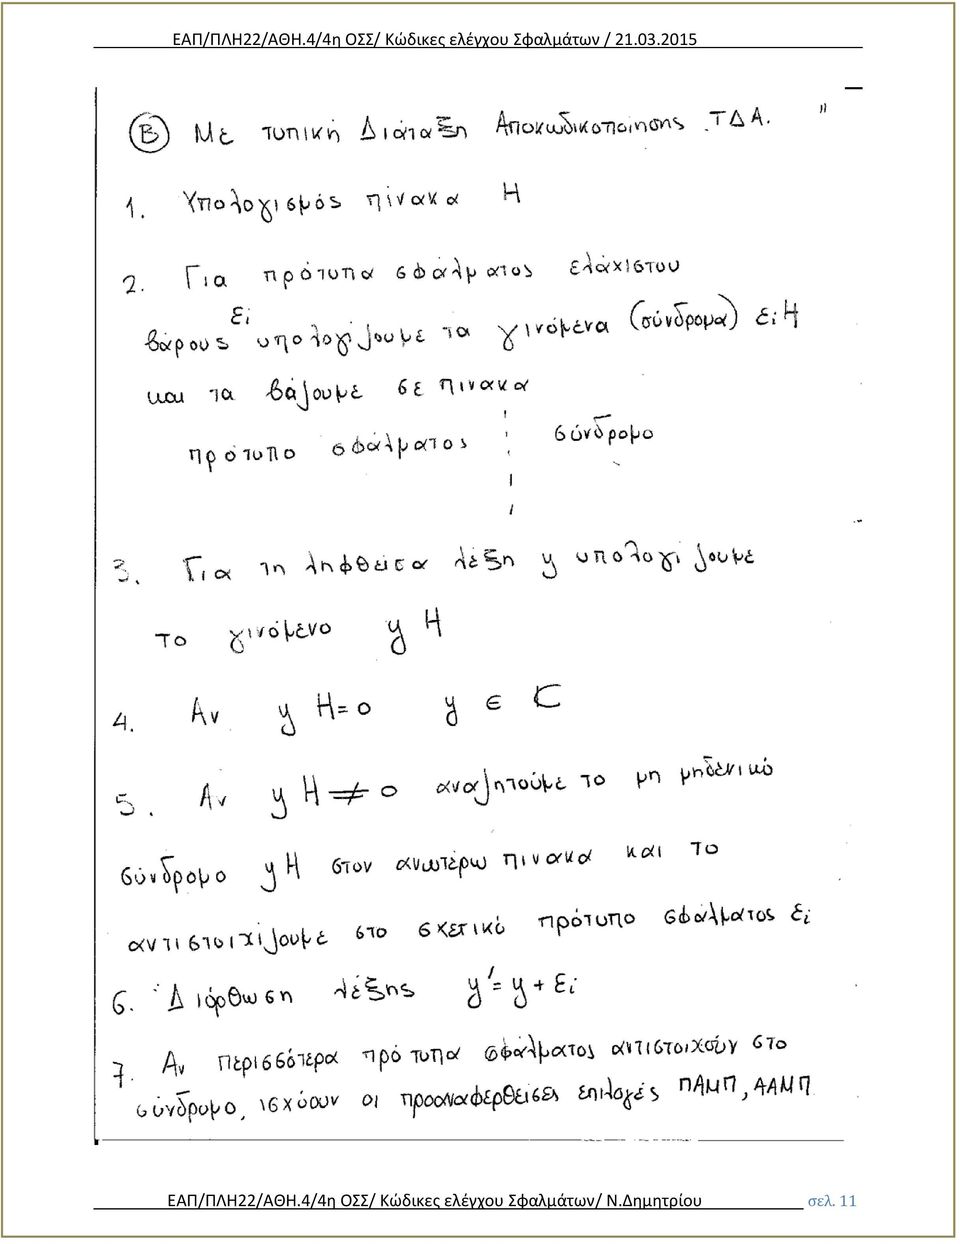 ΕΑΠ/ΠΛΗ22/ΑΘΗ.4/4η ΟΣΣ/ Κώδικες ελέγχου Σφαλμάτων / 21.03.2015
Β Με τυπική Διάταξη Αποκωδικοποίησης .ΤΔΑ. "
1. Υπολογισμός πίνακα Η
2. Για πρότυπα σφάλματος ελάχιστου
βάρους εi υπολογίζουμε τα γινόμενα (σύνδρομα) εi Η
και τα βάζουμε σε πινακα
πρότυπο σφάλματος ¦ σύνδρομο
3. Για τη ληφθείσα λέξη y υπολογίζουμε
το γινόμενο y H
4. Αν y H=0 y ∈ C
5. Αν y H≠0 αναζητούμε το μη μηδενικό
σύνδρομο y H στον ανωτέρω πινακα και το
αντιστοιχίζουμε στο σχετικό πρότυπο σφάλματος εi
6. Διόρθωση λέξης y'= y + εi
7. Αν περισσότερα πρότυπα σφάλματος αντιστοιχούν στο
σύνδρομο, ισχύουν οι προαναφερθείσες επιλογές ΠΑΜΠ, ΑΑΜΠ
ΕΑΠ/ΠΛΗ22/ΑΘΗ.4/4η ΟΣΣ/ Κώδικες ελέγχου Σφαλμάτων/ Ν.Δημητρίου σελ. 11